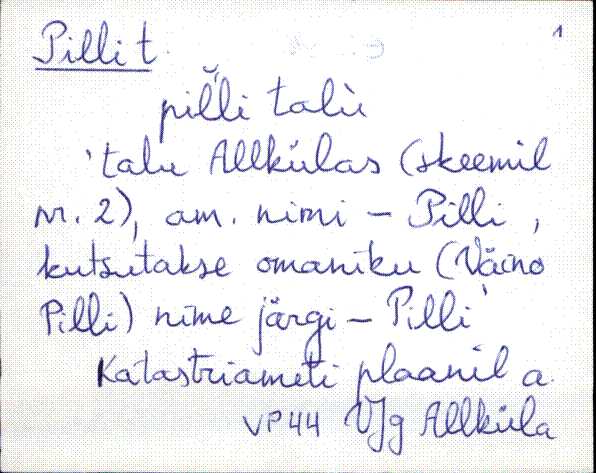 Pilli t. 1
pil̆li talù
'talu Allkülas (skeemil
nr. 2), am. nimi – Pilli,
kutsutakse omaniku (Väino
Pilli) nime järgi – Pilli'
Katastriameti plaanil a.
VP44 VJg Allküla